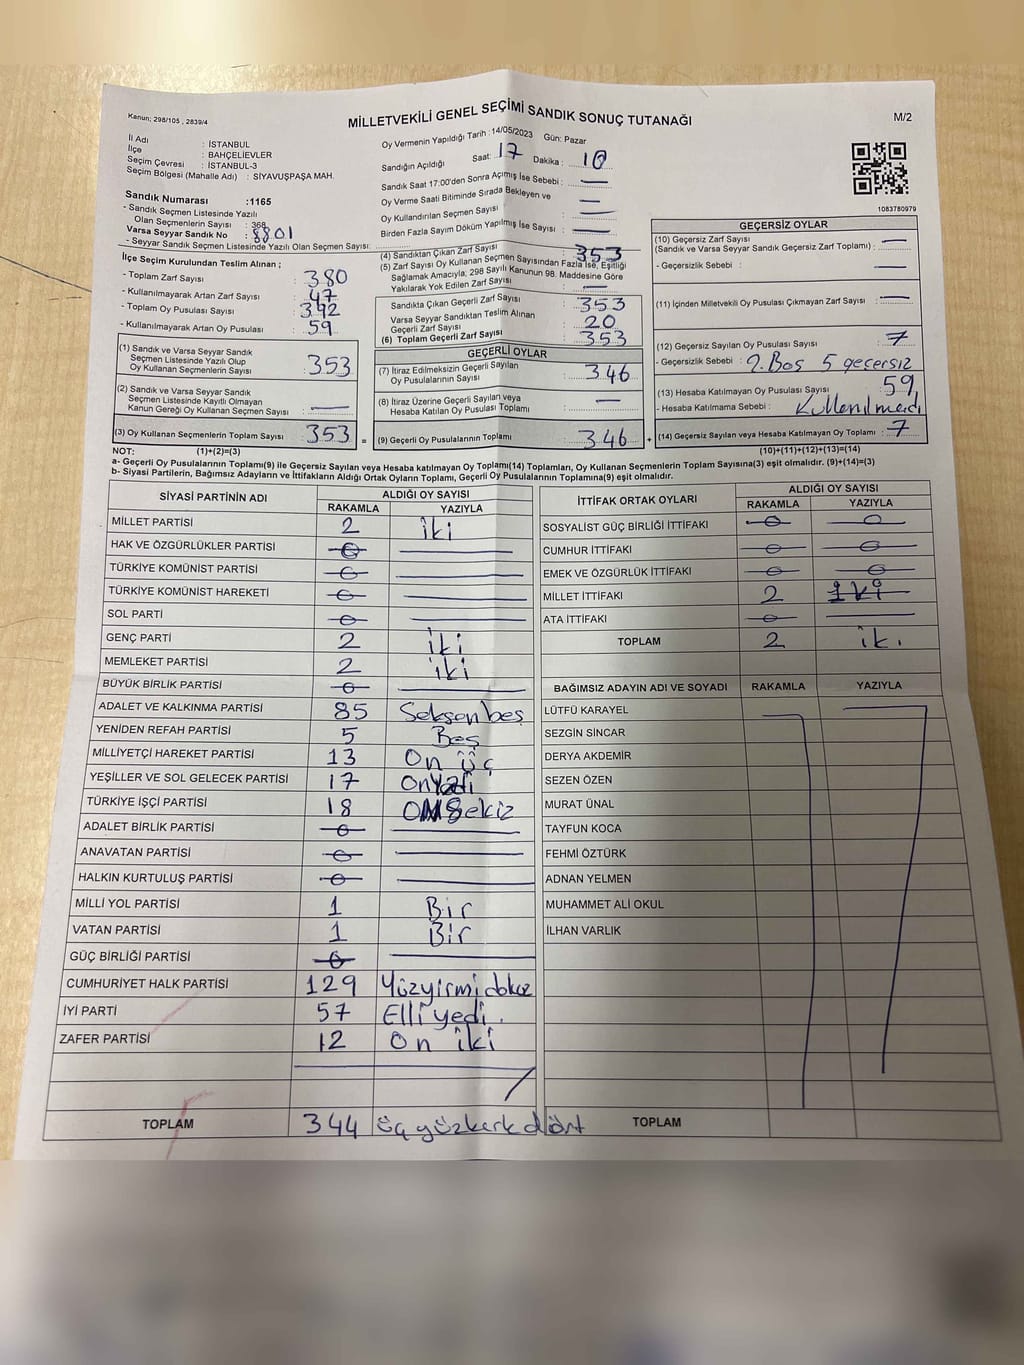 Kanun; 298/105 , 2839/4
MİLLETVEKİLİ GENEL SEÇİMİ SANDIK SONUÇ TUTANAĞI
M/2
İl Adı : İSTANBUL
İlçe : BAHÇELİEVLER
Seçim Çevresi : İSTANBUL-3
Seçim Bölgesi (Mahalle Adı) : SİYAVUŞPAŞA MAH.
Sandık Numarası :1165
- Sandık Seçmen Listesinde Yazılı
Olan Seçmenlerin Sayısı : 368
Varsa Seyyar Sandık No : 8801
- Seyyar Sandık Seçmen Listesinde Yazılı Olan Seçmen Sayısı:
İlçe Seçim Kurulundan Teslim Alınan ;
- Toplam Zarf Sayısı : 380
- Kullanılmayarak Artan Zarf Sayısı : 47
- Toplam Oy Pusulası Sayısı : 392
- Kullanılmayarak Artan Oy Pusulası : 59
(1) Sandık ve Varsa Seyyar Sandık
Seçmen Listesinde Yazılı Olup
Oy Kullanan Seçmenlerin Sayısı : 353
(2) Sandık ve Varsa Seyyar Sandık
Seçmen Listesinde Kayıtlı Olmayan
Kanun Gereği Oy Kullanan Seçmen Sayısı : —
(3) Oy Kullanan Seçmenlerin Toplam Sayısı : 353 =
Oy Vermenin Yapıldığı Tarih : 14/05/2023 Gün: Pazar
Sandığın Açıldığı Saat: 17 Dakika : 10
Sandık Saat 17:00'den Sonra Açılmış İse Sebebi : —
Oy Verme Saati Bitiminde Sırada Bekleyen ve
Oy Kullandırılan Seçmen Sayısı : —
Birden Fazla Sayım Döküm Yapılmış İse Sayısı : —
(4) Sandıktan Çıkan Zarf Sayısı : 353
(5) Zarf Sayısı Oy Kullanan Seçmen Sayısından Fazla İse, Eşitliği
Sağlamak Amacıyla, 298 Sayılı Kanunun 98. Maddesine Göre
Yakılarak Yok Edilen Zarf Sayısı : —
Sandıkta Çıkan Geçerli Zarf Sayısı : 353
Varsa Seyyar Sandıktan Teslim Alınan
Geçerli Zarf Sayısı : 20
(6) Toplam Geçerli Zarf Sayısı : 353
GEÇERLİ OYLAR
(7) İtiraz Edilmeksizin Geçerli Sayılan
Oy Pusulalarının Sayısı : 346
(8) İtiraz Üzerine Geçerli Sayılan veya
Hesaba Katılan Oy Pusulası Toplamı : —
(9) Geçerli Oy Pusulalarının Toplamı : 346 +
1083780979
GEÇERSİZ OYLAR
(10) Geçersiz Zarf Sayısı
(Sandık ve Varsa Seyyar Sandık Geçersiz Zarf Toplamı) : —
- Geçersizlik Sebebi : —
(11) İçinden Milletvekili Oy Pusulası Çıkmayan Zarf Sayısı : —
(12) Geçersiz Sayılan Oy Pusulası Sayısı : 7
- Geçersizlik Sebebi : 2. Boş 5 geçersiz
(13) Hesaba Katılmayan Oy Pusulası Sayısı : 59
- Hesaba Katılmama Sebebi : Kullanılmadı
(14) Geçersiz Sayılan veya Hesaba Katılmayan Oy Toplamı : 7
NOT: (1)+(2)=(3) (10)+(11)+(12)+(13)=(14)
a- Geçerli Oy Pusulalarının Toplamı(9) ile Geçersiz Sayılan veya Hesaba katılmayan Oy Toplamı(14) Toplamları, Oy Kullanan Seçmenlerin Toplam Sayısına(3) eşit olmalıdır. (9)+(14)=(3)
b- Siyasi Partilerin, Bağımsız Adayların ve İttifakların Aldığı Ortak Oyların Toplamı, Geçerli Oy Pusulalarının Toplamına(9) eşit olmalıdır.
SİYASİ PARTİNİN ADI ALDIĞI OY SAYISI
RAKAMLA YAZIYLA
MİLLET PARTİSİ 2 iki
HAK VE ÖZGÜRLÜKLER PARTİSİ 0 —
TÜRKİYE KOMÜNİST PARTİSİ 0 —
TÜRKİYE KOMÜNİST HAREKETİ 0 —
SOL PARTİ 0 —
GENÇ PARTİ 2 iki
MEMLEKET PARTİSİ 2 iki
BÜYÜK BİRLİK PARTİSİ 0 —
ADALET VE KALKINMA PARTİSİ 85 Seksen beş
YENİDEN REFAH PARTİSİ 5 Beş
MİLLİYETÇİ HAREKET PARTİSİ 13 On üç
YEŞİLLER VE SOL GELECEK PARTİSİ 17 Onyedi
TÜRKİYE İŞÇİ PARTİSİ 18 Onsekiz
ADALET BİRLİK PARTİSİ 0 —
ANAVATAN PARTİSİ 0 —
HALKIN KURTULUŞ PARTİSİ 0 —
MİLLİ YOL PARTİSİ 1 Bir
VATAN PARTİSİ 1 Bir
GÜÇ BİRLİĞİ PARTİSİ 0 —
CUMHURİYET HALK PARTİSİ 129 Yüzyirmidokuz
İYİ PARTİ 57 Elli yedi.
ZAFER PARTİSİ 12 On iki
TOPLAM 344 üç yüzkırk dört
İTTİFAK ORTAK OYLARI ALDIĞI OY SAYISI
RAKAMLA YAZIYLA
SOSYALİST GÜÇ BİRLİĞİ İTTİFAKI 0 0
CUMHUR İTTİFAKI 0 0
EMEK VE ÖZGÜRLÜK İTTİFAKI 0 0
MİLLET İTTİFAKI 2 iki
ATA İTTİFAKI 0 —
TOPLAM 2 iki
BAĞIMSIZ ADAYIN ADI VE SOYADI RAKAMLA YAZIYLA
LÜTFÜ KARAYEL
SEZGİN SİNCAR
DERYA AKDEMİR
SEZEN ÖZEN
MURAT ÜNAL
TAYFUN KOCA
FEHMİ ÖZTÜRK
ADNAN YELMEN
MUHAMMET ALİ OKUL
İLHAN VARLIK
TOPLAM